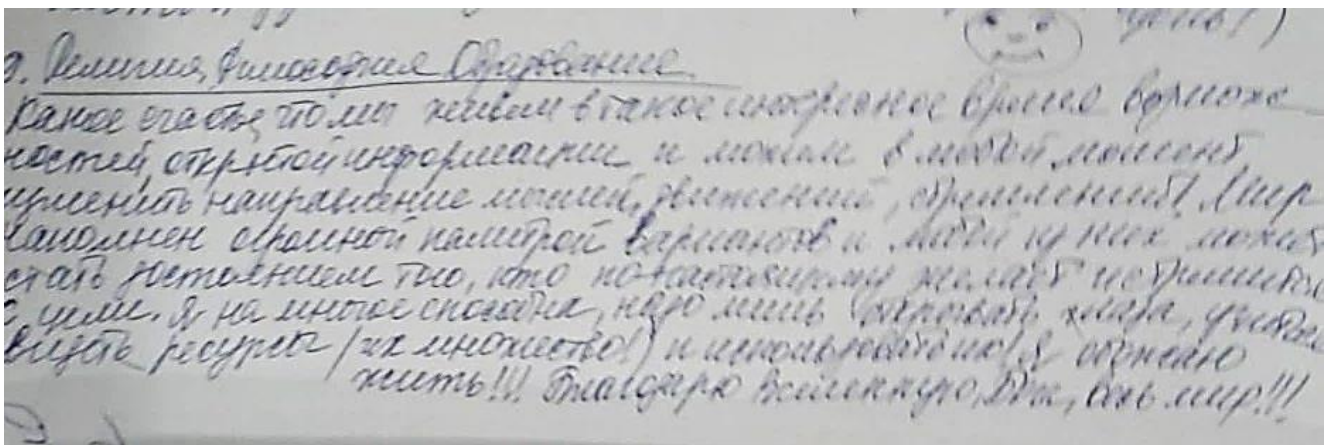 день!)
9. Религия, Философия Образование.
Какое счастье, что мы живем в такое интересное время возмож-
ностей, открытой информации и можем в любой момент
изменить направление мыслей, движений, стремлений! Мир
наполнен огромной палитрой вариантов и любой из них может
стать достоянием того, кто по-настоящему желает и стремится
к цели. Я на многое способна, надо лишь открывать глаза,
видеть ресурсы (их множество!) и использовать их! Я обожаю
жить!!! Благодарю Вселенную, весь мир!!!